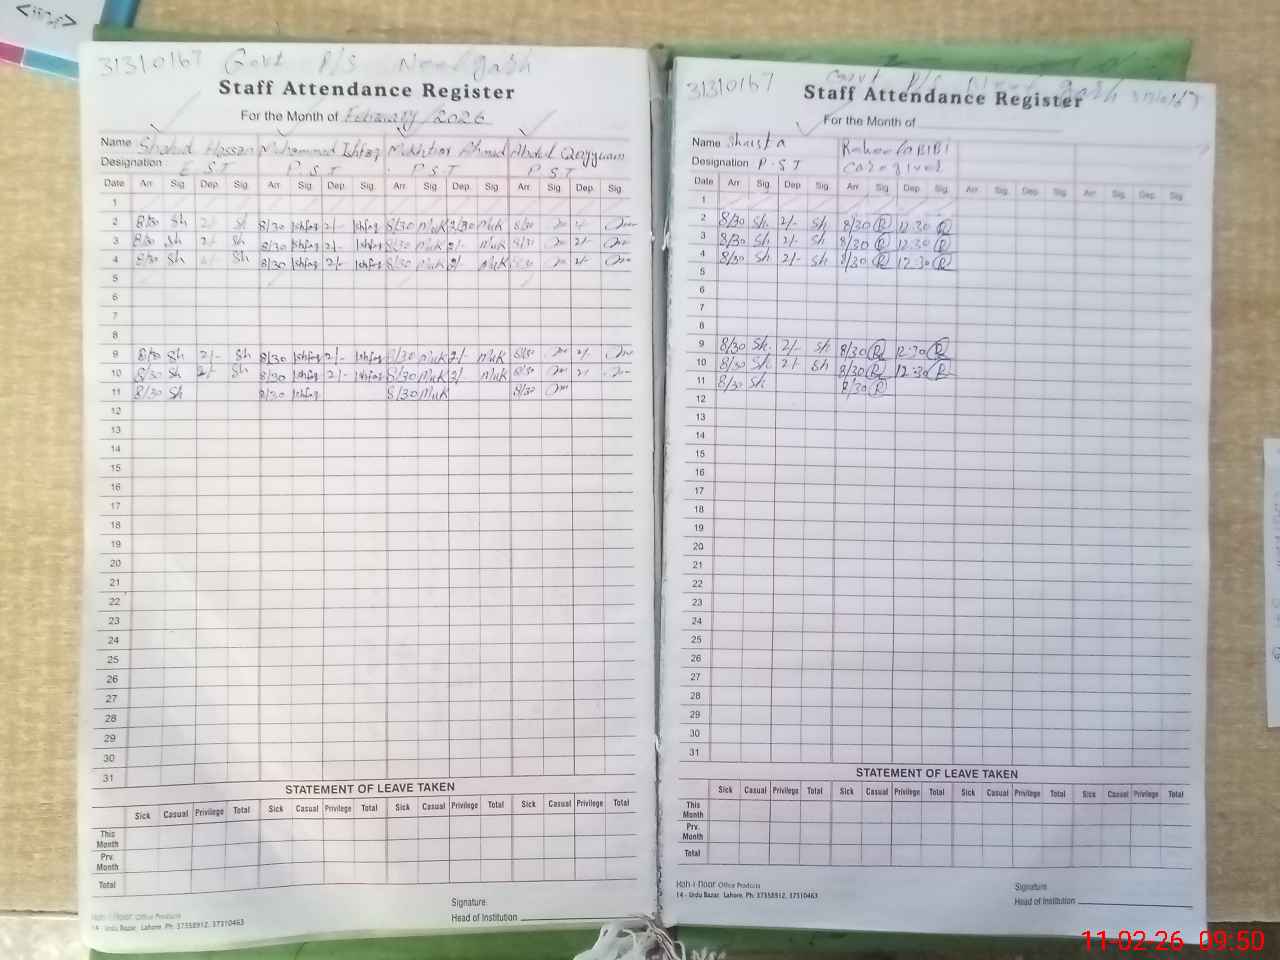 31310167 Govt P/S Neel gash
Staff Attendance Register
For the Month of February/2026
Name Shahid Hassan Muhammad Ishfaq Mukhtiar Ahmad Abdul Qayyuam
Designation E.S.T P.S.T P.S.T P.S.T
Date Arr. Sig. Dep. Sig. Arr. Sig. Dep. Sig. Arr. Sig. Dep. Sig. Arr. Sig. Dep. Sig.
1
2 8/30 Sh 2/- Sh 8/30 Ishfaq 2/- Ishfaq 8/30 Muk 2/30 Muk 8/30
3 8/30 Sh 2/- Sh 8/30 Ishfaq 2/- Ishfaq 8/30 Muk 2/- Muk 8/30 2/-
4 8/30 Sh 2/- Sh 8/30 Ishfaq 2/- Ishfaq 8/30 Muk 2/ Muk 2/-
5
6
7
8
9 8/30 Sh 2/- Sh 8/30 Ishfaq 2/- Ishfaq 8/30 Muk 2/- Muk 8/30 2/-
10 8/30 Sh 2/- Sh 8/30 Ishfaq 2/- Ishfaq 8/30 Muk 2/ Muk 8/30
11 8/30 Sh 8/30 Ishfaq 8/30 Muk 8/30
12
13
14
15
16
17
18
19
20
21
22
23
24
25
26
27
28
29
30
31
STATEMENT OF LEAVE TAKEN
Sick Casual Privilege Total Sick Casual Privilege Total Sick Casual Privilege Total Sick Casual Privilege Total
This Month
Prv. Month
Total
Signature
Head of Institution
Koh-i-Noor Office Products
14 - Urdu Bazar, Lahore. Ph: 37358912, 37310463
31310167 Govt P/S Neel gash 31310167
Staff Attendance Register
For the Month of
Name Shaista Raheela BIBI
Designation P.S.T Caregiver
Date Arr. Sig. Dep. Sig. Arr. Sig. Dep. Sig. Arr. Sig. Dep. Sig. Arr. Sig. Dep. Sig.
1
2 8/30 Sh 2/- Sh 8/30 R 12:30 R
3 8/30 Sh 2/- Sh 8/30 R 12:30 R
4 8/30 Sh 2/- Sh 8/30 R 12:30 R
5
6
7
8
9 8/30 Sh 2/- Sh 8/30 R 12:30 R
10 8/30 Sh 2/- Sh 8/30 R 12:30 R
11 8/30 Sh 8/30 R
12
13
14
15
16
17
18
19
20
21
22
23
24
25
26
27
28
29
30
31
STATEMENT OF LEAVE TAKEN
Sick Casual Privilege Total Sick Casual Privilege Total Sick Casual Privilege Total Sick Casual Privilege Total
This Month
Prv. Month
Total
Koh-i-Noor Office Products
14 - Urdu Bazar, Lahore. Ph: 37358912, 37310463
Signature
Head of Institution
11-02-26 09:50